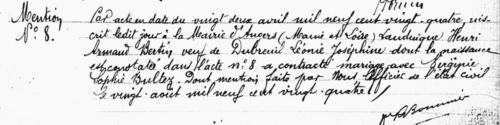 Mention
N° 8.
Par acte en date du vingt deux avril mil neuf cent vingt-quatre, ins-
crit ledit jour à la Mairie d'Angers (Maine et Loire) Landrique Henri
Armand Bertin veuf de Dubreuil Léonie Joséphine dont la naissance
est constatée dans l'acte n° 8 a contracté mariage avec Virginie
Sophie Bultez. Dont mention faite par Nous Officier de l'état civil
le vingt-août mil neuf cent vingt-quatre